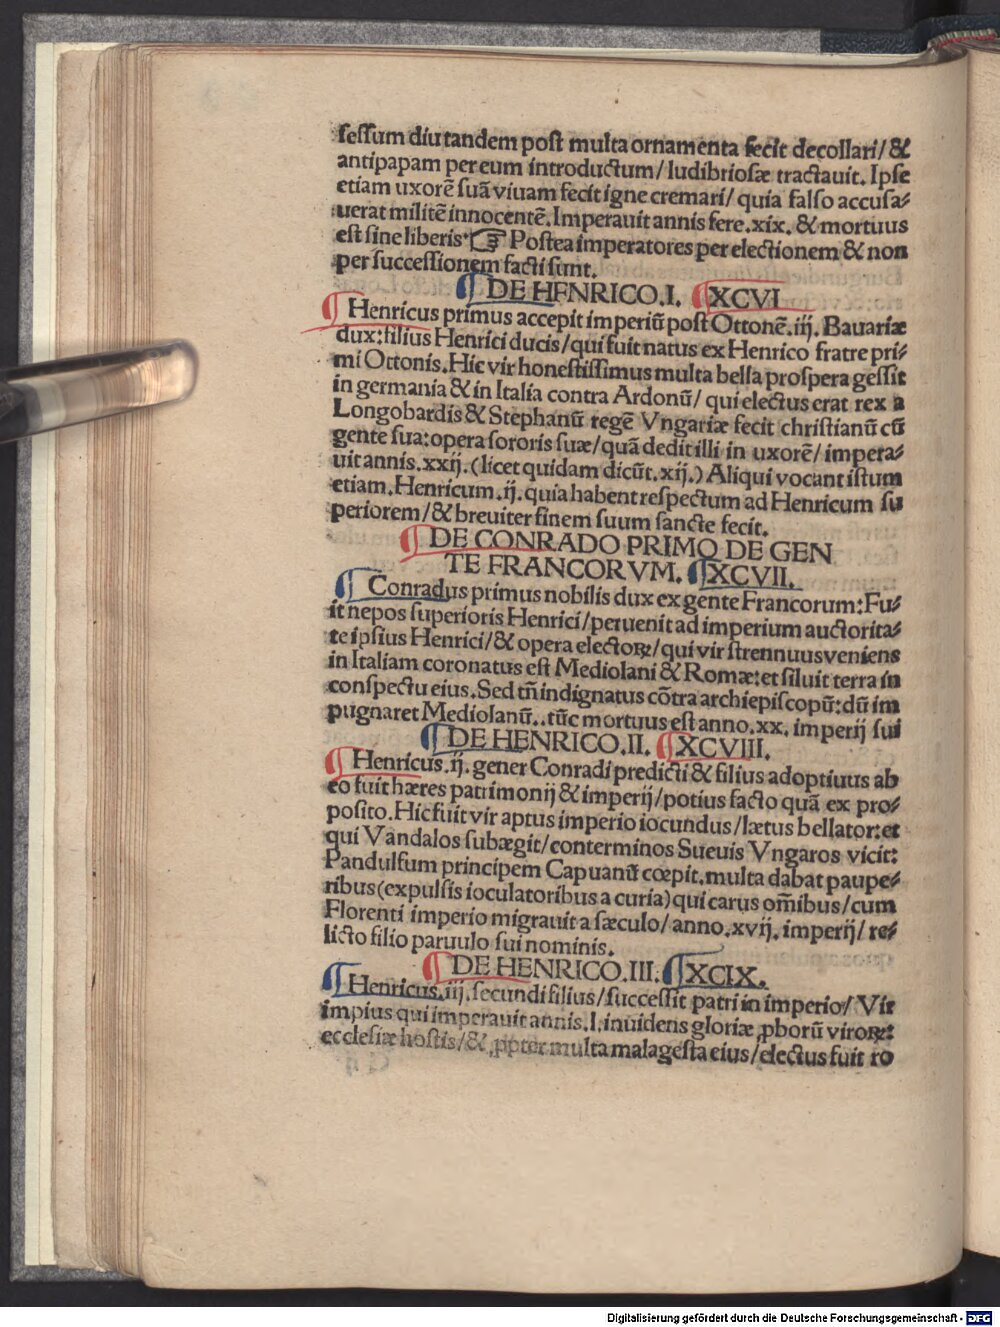 ſeſſum diu tandem poſt multa ornamenta fecit decollari/ &
antipapam per eum introductum/ ludibrioſæ tractauit. Ipſe
etiam uxorē ſuā viuam fecit igne cremari/ quia falſo accuſa⸗
uerat militē innocentē. Imperauit annis fere .xix. & mortuus
eſt ſine liberis. ☞ Poſtea imperatores per electionem & non
per ſucceſſionem facti ſunt.
¶ DE HENRICO .I. ¶ XCVI
¶ Henricus primus accepit imperiū poſt Ottonē .iij. Bauariæ
dux: filius Henrici ducis/ qui fuit natus ex Henrico fratre pri⸗
mi Ottonis. Hic vir honeſtiſſimus multa bella proſpera geſſit
in germania & in Italia contra Ardonū/ qui electus erat rex a
Longobardis & Stephanū regē Vngariæ fecit chriſtianū cū
gente ſua: opera ſororis ſuæ/ quā dedit illi in uxorē/ impera⸗
uit annis .xxij. (licet quidam dicūt .xij.) Aliqui vocant iſtum
etiam .Henricum .ij. quia habent reſpectum ad Henricum ſu
periorem/ & breuiter finem ſuum ſancte fecit.
¶ DE CONRADO PRIMO DE GEN
TE FRANCORVM. ¶ XCVII.
¶ Conradus primus nobilis dux ex gente Francorum: Fu⸗
it nepos ſuperioris Henrici/ peruenit ad imperium auctorita⸗
te ipſius Henrici/ & opera electoꝝ/ qui vir ſtrennuus veniens
in Italiam coronatus eſt Mediolani & Romæ: et ſiluit terra in
conſpectu eius. Sed tñ indignatus cōtra archiepiſcopū: dū im
pugnaret Mediolanū.. tūc mortuus eſt anno .xx. imperij ſui
¶ DE HENRICO .II. ¶ XCVIII.
¶ Henricus .ij. gener Conradi predicti & filius adoptiuus ab
eo fuit hæres patrimonij & imperij/ potius facto quā ex pro⸗
poſito. Hic fuit vir aptus imperio iocundus/ lætus bellator: et
qui Vandalos ſubægit/ conterminos Sueuis Vngaros vicit:
Pandulfum principem Capuanū cœpit. multa dabat paupe⸗
ribus (expulſis ioculatoribus a curia) qui carus om̄ibus/ cum
Florenti imperio migrauit a ſæculo/ anno .xvij. imperij/ re⸗
licto filio paruulo ſui nominis.
¶ DE HENRICO .III. ¶ XCIX.
¶ Henricus .iij. ſecundi filius/ ſucceſſit patri in imperio/ Vir
impius qui imperauit annis .l. inuidens gloriæ ꝓborū viroꝝ:
eccleſiæ hoſtis/ & ꝓpter multa mala geſta eius/ electus fuit ro
Digitalisierung gefördert durch die Deutsche Forschungsgemeinschaft - DFG